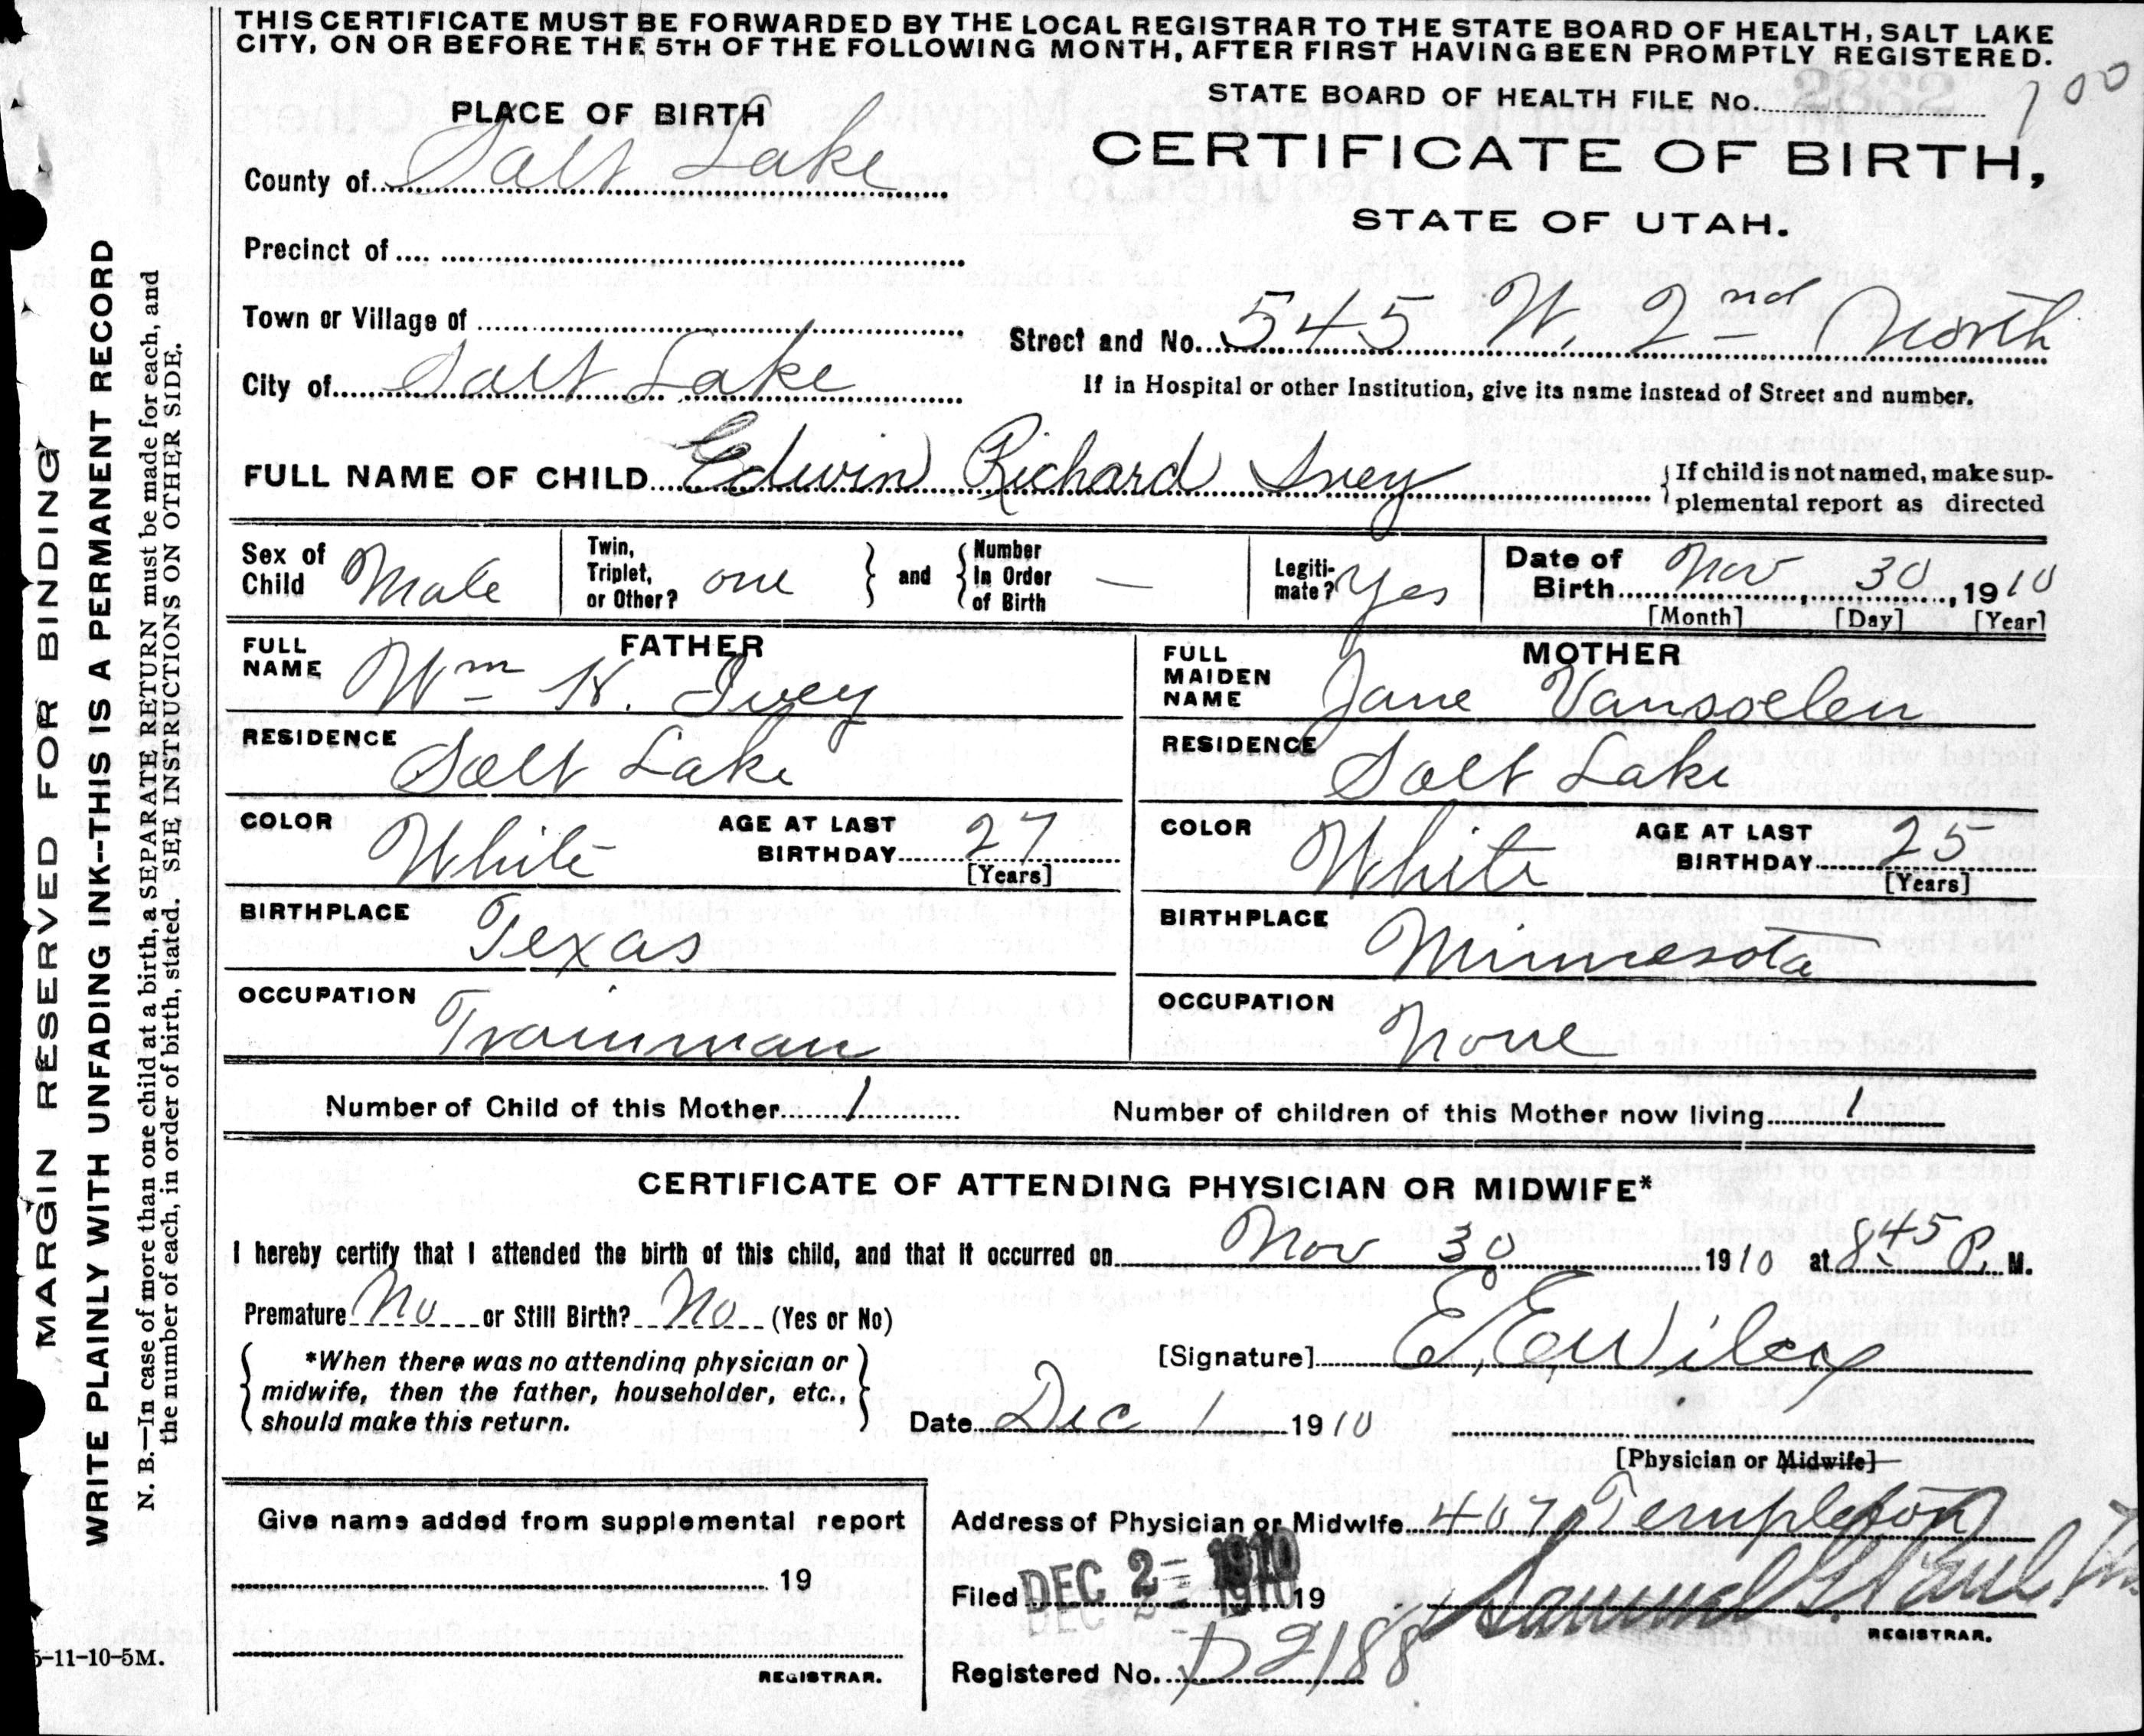 THIS CERTIFICATE MUST BE FORWARDED BY THE LOCAL REGISTRAR TO THE STATE BOARD OF HEALTH, SALT LAKE
CITY, ON OR BEFORE THE 5TH OF THE FOLLOWING MONTH, AFTER FIRST HAVING BEEN PROMPTLY REGISTERED.
STATE BOARD OF HEALTH FILE No.
PLACE OF BIRTH
CERTIFICATE OF BIRTH,
County of Salt Lake
STATE OF UTAH.
Precinct of
Town or Village of
Street and No. 545 W. 2nd North
City of Salt Lake
If in Hospital or other Institution, give its name instead of Street and number.
FULL NAME OF CHILD Edwin Richard Ivey
{ If child is not named, make sup-
plemental report as directed
Sex of Child Male
Twin, Triplet, or Other? one } and { Number In Order of Birth —
Legiti-mate? Yes
Date of Birth Nov 30, 1910
[Month] [Day] [Year]
FATHER
FULL NAME Wm H. Ivey
MOTHER
FULL MAIDEN NAME Jane Vansoelen
RESIDENCE Salt Lake
RESIDENCE Salt Lake
COLOR White AGE AT LAST BIRTHDAY 27 [Years]
COLOR White AGE AT LAST BIRTHDAY 25 [Years]
BIRTHPLACE Texas
BIRTHPLACE Minnesota
OCCUPATION Trainman
OCCUPATION None
Number of Child of this Mother 1
Number of children of this Mother now living 1
CERTIFICATE OF ATTENDING PHYSICIAN OR MIDWIFE*
I hereby certify that I attended the birth of this child, and that it occurred on Nov 30 1910 at 845 P. M.
Premature No or Still Birth? No (Yes or No)
*When there was no attending physician or
midwife, then the father, householder, etc.,
should make this return.
[Signature] E. E. Wilcox
Date Dec 1 1910
[Physician or Midwife]
Give name added from supplemental report
19
REGISTRAR.
Address of Physician or Midwife 407 Templeton
Filed DEC 2 - 1910 19
REGISTRAR.
Registered No. D2188
MARGIN RESERVED FOR BINDING
WRITE PLAINLY WITH UNFADING INK--THIS IS A PERMANENT RECORD
N. B.—In case of more than one child at a birth, a SEPARATE RETURN must be made for each, and
the number of each, in order of birth, stated. SEE INSTRUCTIONS ON OTHER SIDE.
-11-10-5M.